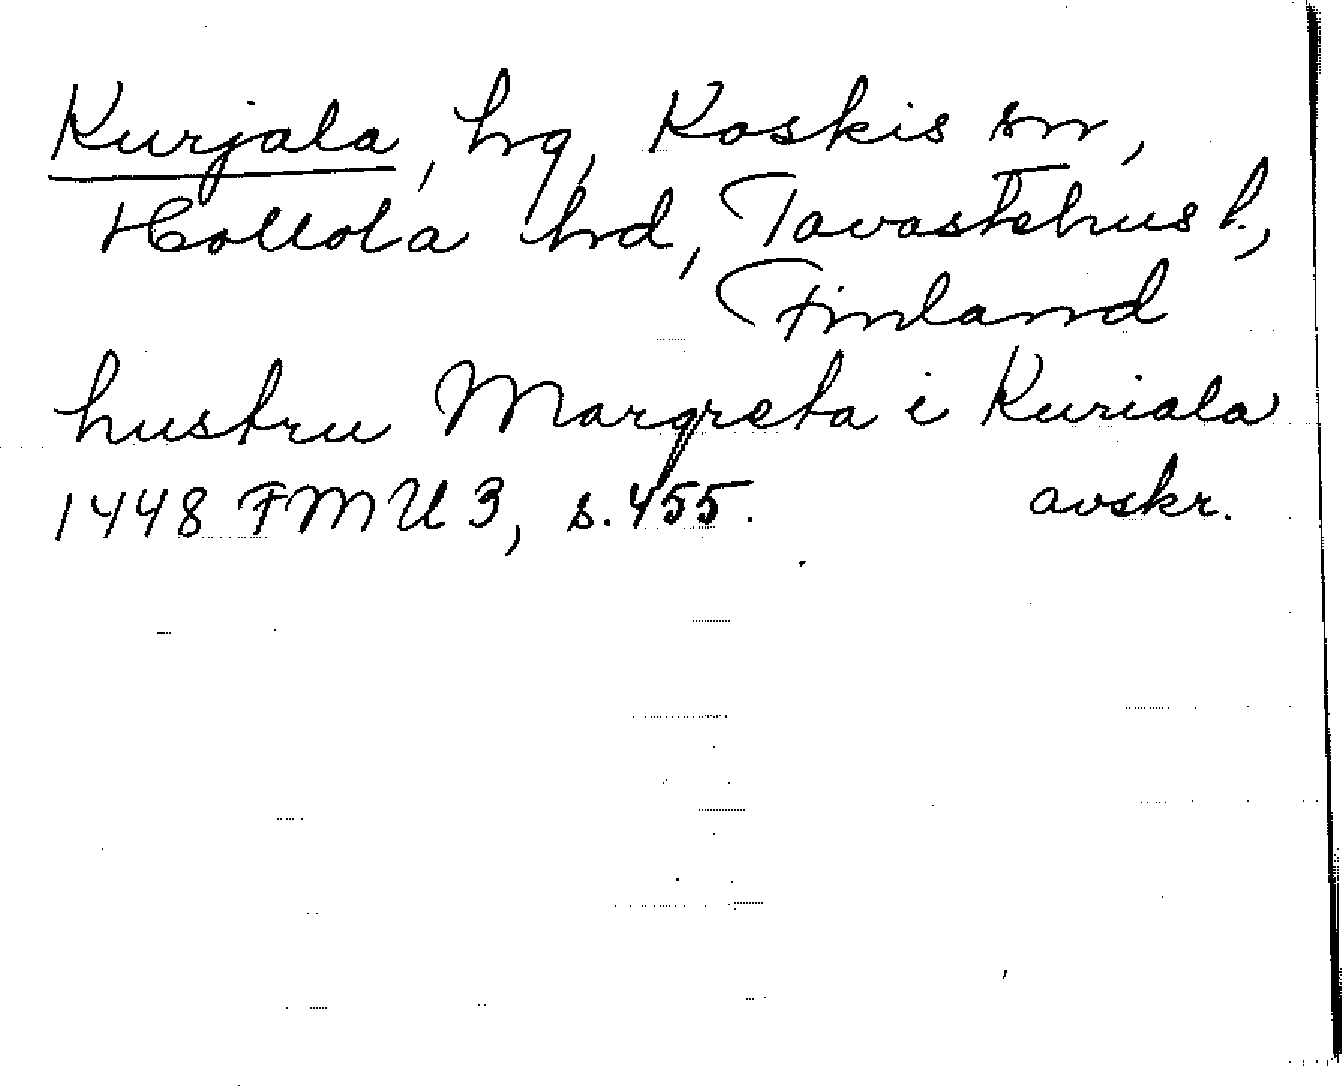 Kurjala, hrg, Koskis sn,
Hollola hrd, Tavastehus l.,
Finland
hustru Margreta i Kuriala
1448 FMU 3, s. 455. avskr.